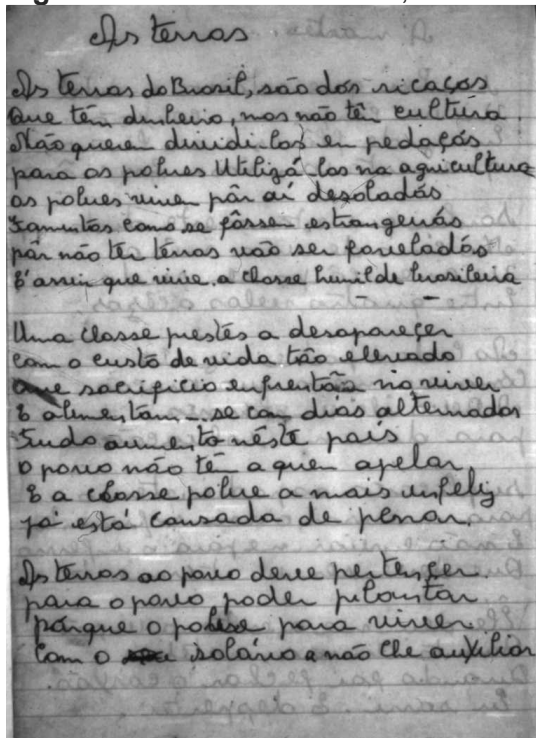 As terras
As terras do Brasil, são dos ricaços
Que têm dinheiro, mas não tê cultura.
Não querem dividi-las em pedaços
para os pobres Utilizá-las na agricultura
os pobres vivem pôr aí desolados
Famintos como se fôssem estrangeiros
pôr não ter terras vão ser favelados
E'assim que vive, a classe humilde brasileira
Uma classe prestes a desapareçer
com o custo de vida tão elevado
Que sacrificio enfrentão no viver
E alimentam-se com dias alternados
Tudo aumenta nêste país
O povo não tê a quem apelar,
E a classe pobre a mais infeliz
já está cansada de penar.
As terras ao povo deve pertençer.
para o povo poder plantar
pôrque o pobre para viver
Com o salário a não lhe auxiliar